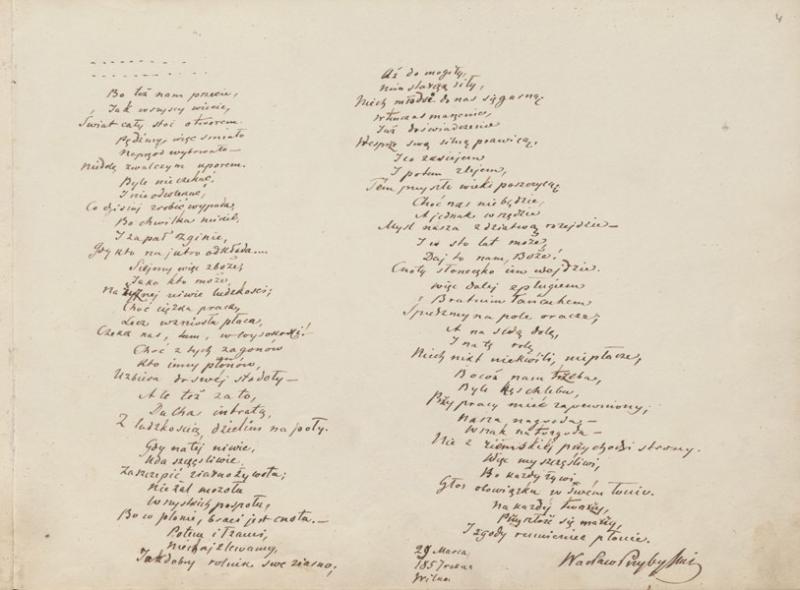 4
Bo też nam przecie,
Jak wszyscy wiecie,
Świat cały stoi otworem.
Pędźmy, więc śmiało
Naprzód wytrwało —
zwalczym uporem.
Byle nie czekać,
I nie odwlekać,
Co dzisiaj zrobić wypada,
Bo chwilka
I zapał zginie,
Gdy kto na jutro odkłada....
Siejmy więc zboże,
Jako kto może,
Na żyznej niwie ludzkości;
Choć ciężka praca,
Lecz wzniosła płaca,
Czeka nas, tam, w wysokości!
Choć z tych zagonów
Kto inny plonów,
Uzbiera do swéj stodoły —
Ale też za to,
Ducha intratą,
Z ludzkością dzielim na poły.
Gdy na téj niwie,
Uda szczęśliwie
Zaszczepić ziarno żywota;
Nie żal mozołu
Wszystkich pospołu,
Bo co plonie, braci jest cnota. —
Potem i łzami,
Niechaj zlewamy,
Jak dobry rolnik swe ziarno;
Aż do mogiły,
Nim starczą siły,
Niech młodsi do nas się garną.
Wówczas
Już doświadczenie
Wesprze swą silną prawicą,
I co zasiejem
I potem zlejem,
Tém przyszłe wieki poszczycą
Choć nas nie będzie,
A jednak wszędzie
Myśl nasza z dziatwą wzejdzie —
I w sto lat może,
Daj to nam, Boże!
Cnoty słoneczko im wejdzie.
Więc daléj z pługiem
Bratnim łańcuchem
Śpieszmy na pole oracze;
A na swą dolę,
I na tę rolę
Niech nikt nie kwili, nie płacze,
Bo cóż nam trzeba,
Byle kęs chleba,
Przy pracy mieć zapewniony;
Nasza nagroda —
Wszak
Nie z ziemskiéj przychodzi strony.
Więc my szczęśliwi,
Bo każdy żywi
Głos obowiązku w swém łonie.
Na każdéj twarzy,
Przyszłość się marzy,
I zgody rumieniec płonie.
29 Marca
1857 roku
Wilno
Wacław Przybylski